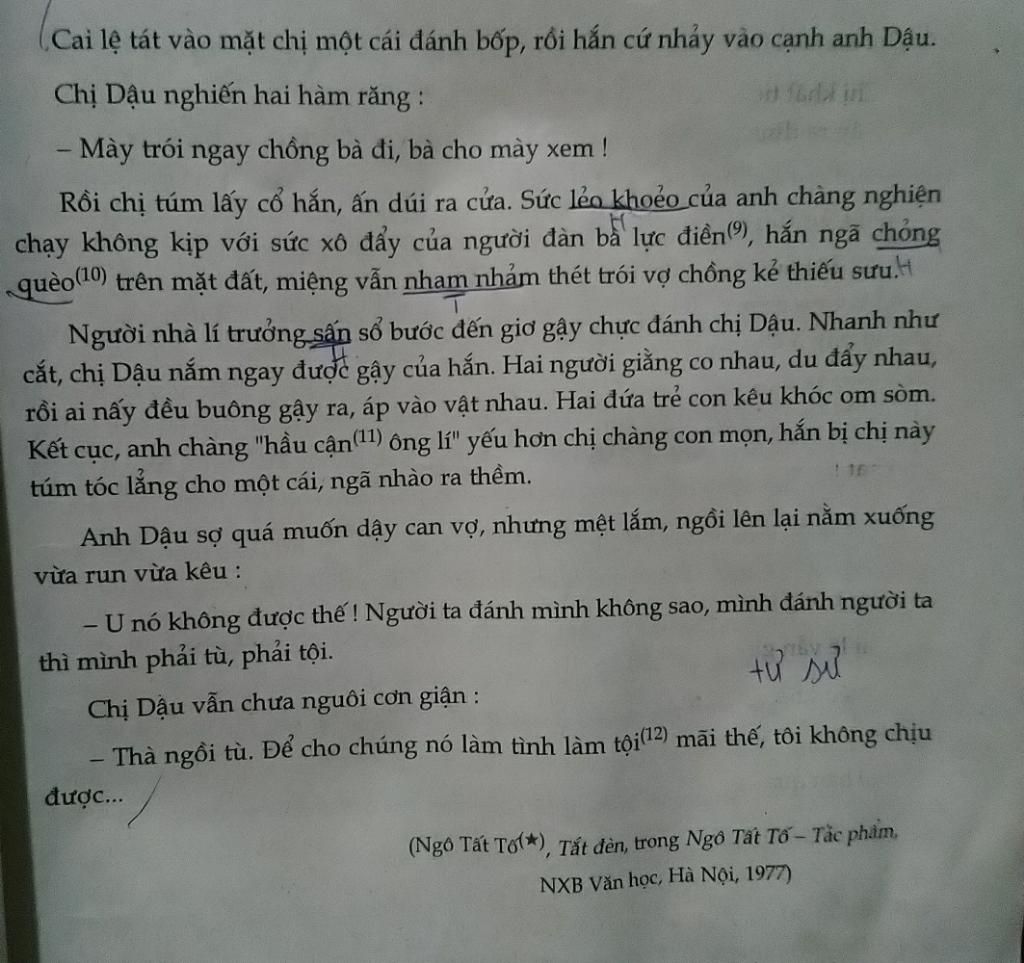 Cai lệ tát vào mặt chị một cái đánh bốp, rồi hắn cứ nhảy vào cạnh anh Dậu.
Chị Dậu nghiến hai hàm răng :
– Mày trói ngay chồng bà đi, bà cho mày xem !
Rồi chị túm lấy cổ hắn, ấn dúi ra cửa. Sức lẻo khoẻo của anh chàng nghiện
H
chạy không kịp với sức xô đẩy của người đàn bà lực điền(9), hắn ngã chỏng
quèo(10) trên mặt đất, miệng vẫn nham nhảm thét trói vợ chồng kẻ thiếu sưu. H
T
Người nhà lí trưởng sấn sổ bước đến giơ gậy chực đánh chị Dậu. Nhanh như
H
cắt, chị Dậu nắm ngay được gậy của hắn. Hai người giằng co nhau, du đẩy nhau,
rồi ai nấy đều buông gậy ra, áp vào vật nhau. Hai đứa trẻ con kêu khóc om sòm.
Kết cục, anh chàng "hầu cận(11) ông lí" yếu hơn chị chàng con mọn, hắn bị chị này
túm tóc lẳng cho một cái, ngã nhào ra thềm.
Anh Dậu sợ quá muốn dậy can vợ, nhưng mệt lắm, ngồi lên lại nằm xuống
vừa run vừa kêu :
– U nó không được thế ! Người ta đánh mình không sao, mình đánh người ta
thì mình phải tù, phải tội.
tử sử
Chị Dậu vẫn chưa nguôi cơn giận :
– Thà ngồi tù. Để cho chúng nó làm tình làm tội(12) mãi thế, tôi không chịu
được...
(Ngô Tất Tố(★), Tắt đèn, trong Ngô Tất Tố – Tác phẩm,
NXB Văn học, Hà Nội, 1977)